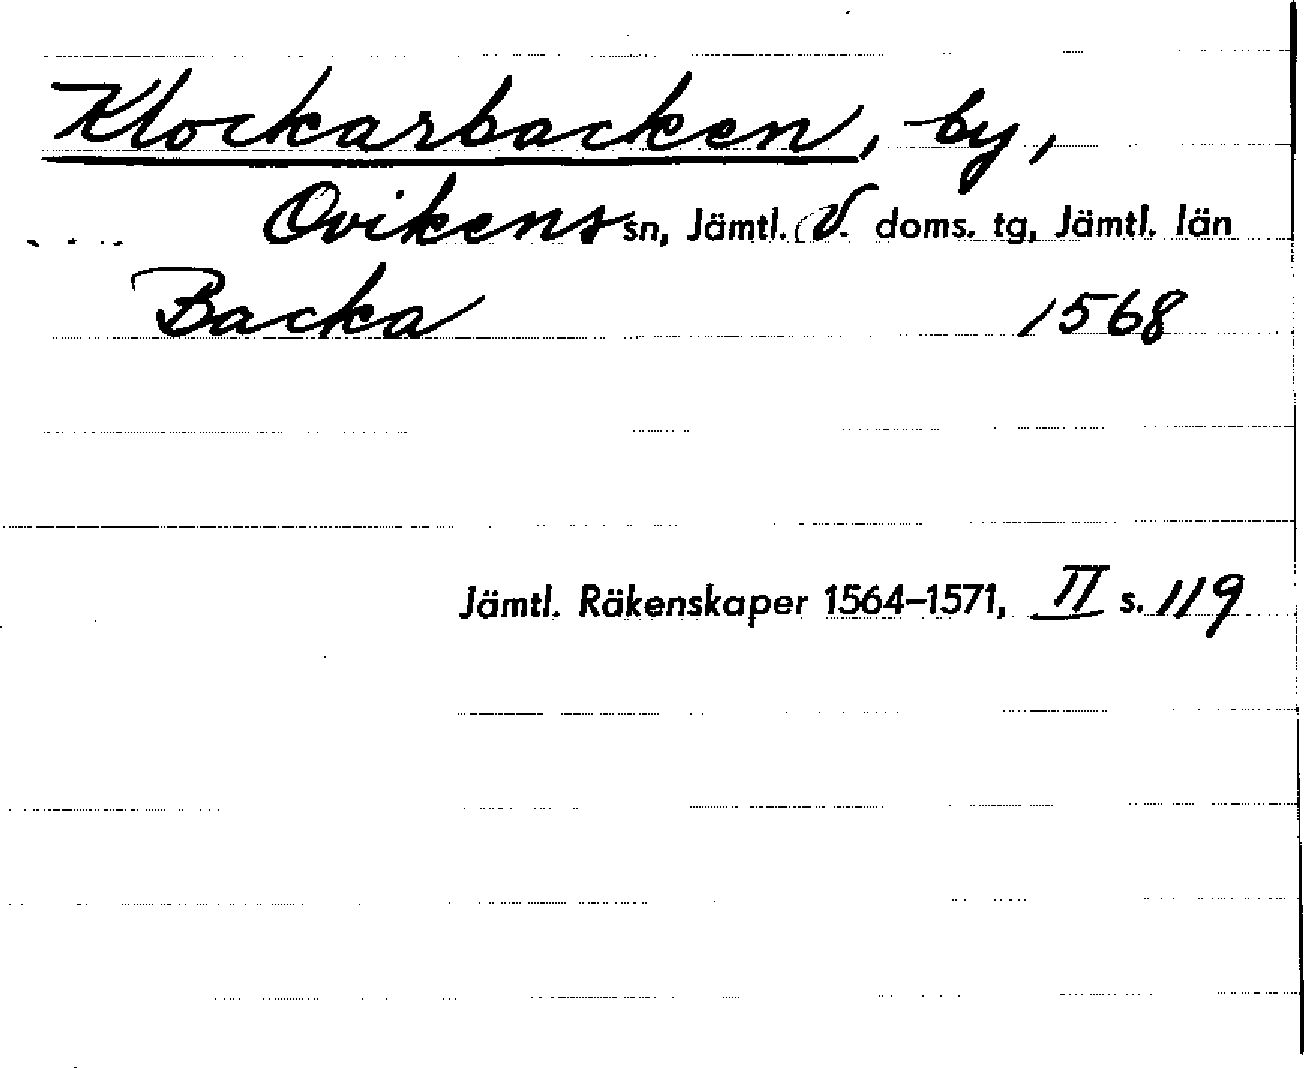 Klockarbacken, by,
Ovikens sn, Jämtl. V. doms. tg, Jämtl. län
Backa 1568
Jämtl. Räkenskaper 1564–1571, II s. 119